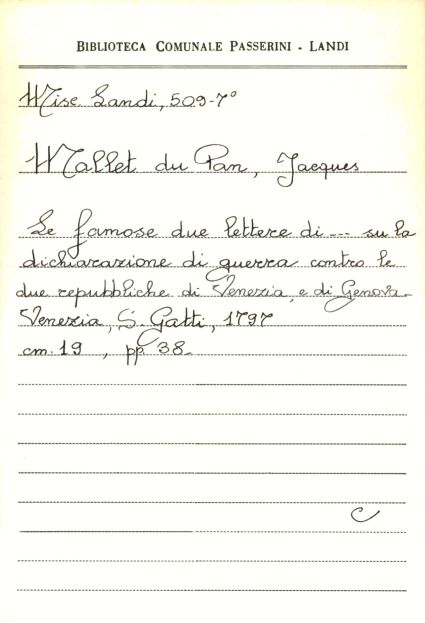 BIBLIOTECA COMUNALE PASSERINI - LANDI
Misc. Landi, 509-7°
Mallet du Pan, Jacques
Le famose due lettere di --- su la
dichiarazione di guerra contro le
due repubbliche di Venezia, e di Genova.
Venezia, S. Gatti, 1797
cm. 19 , pp. 38.
C